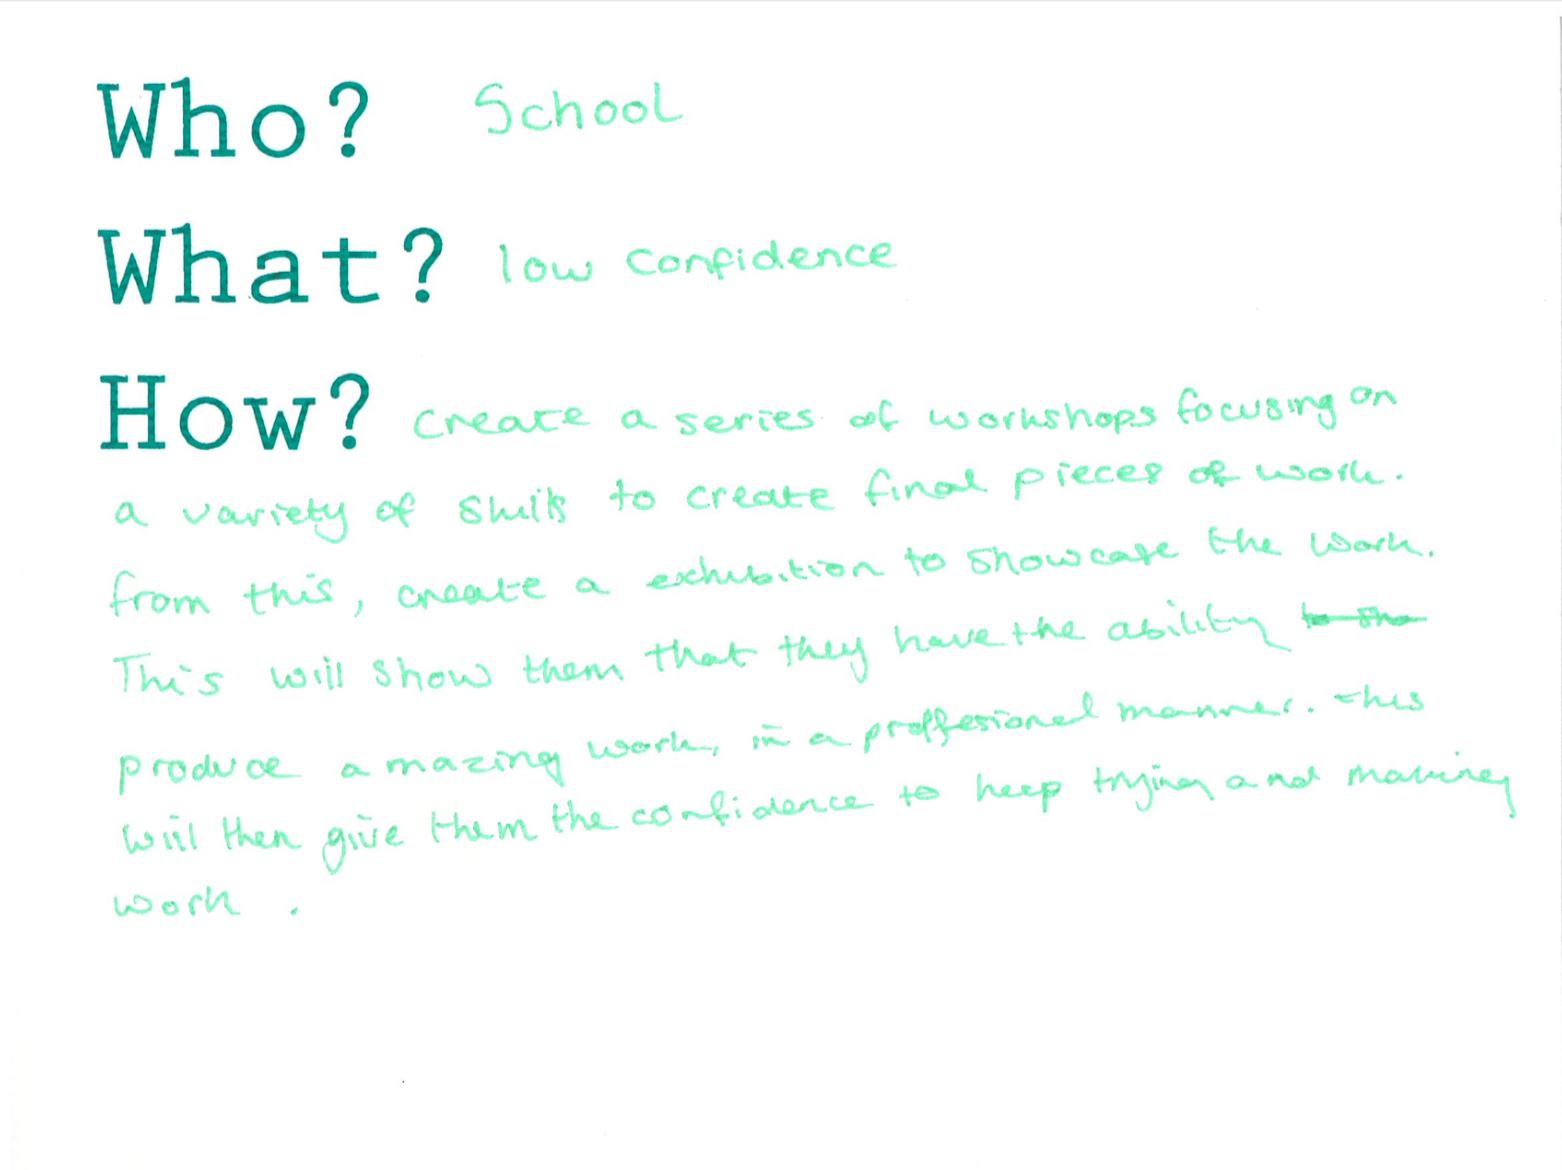 Who? School
What? low confidence
How? create a series of workshops focusing on
a variety of skills to create final pieces of work.
from this, create a exhibition to showcase the work.
This will show them that they have the ability to sho
produce amazing work, in a proffesional manner. this
will then give them the confidence to keep trying and making
work .